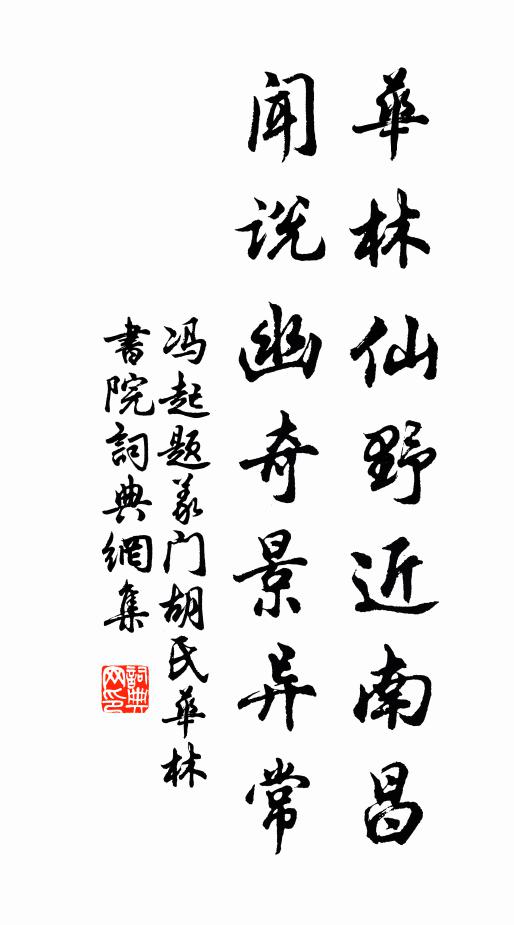 華林仙野近南昌
闻说幽奇景异常
冯起题义门胡氏華林
書院詞典網集
詞典
网印